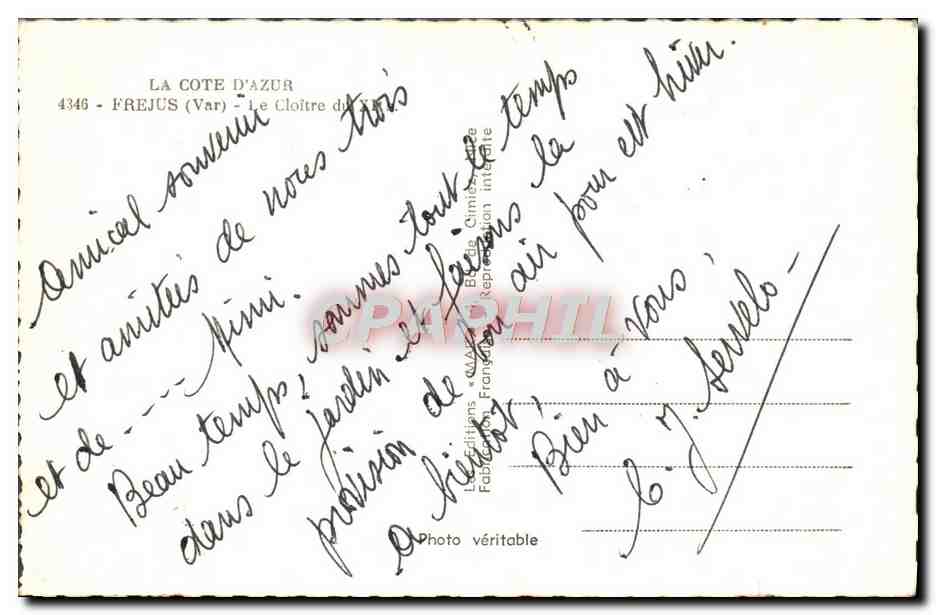 LA COTE D'AZUR
4346 - FREJUS (Var) - Le Cloître du
Amical souvenir
et amitiés de nous trois
et de --- Mimi.
Beau temps! sommes tout le temps
dans le jardin et faisons la
provision de bon air pour cet hiver.
A bientôt!
Bien à vous!
C. J.
CPAPHIL
Les Éditions « MAR Bd de Cimiez, Nice
Fabrication Française Reproduction interdite
Photo véritable